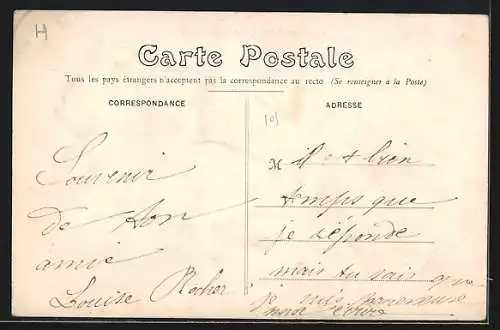 H
Carte Postale
Tous les pays étrangers n'acceptent pas la correspondance au recto (Se renseigner à la Poste)
CORRESPONDANCE
ADRESSE
Souvenir
de ton
amie
Louise Rocher
M il et bien
temps que
je réponde
mais tu sais que
je suis paresseuse
pour écrire